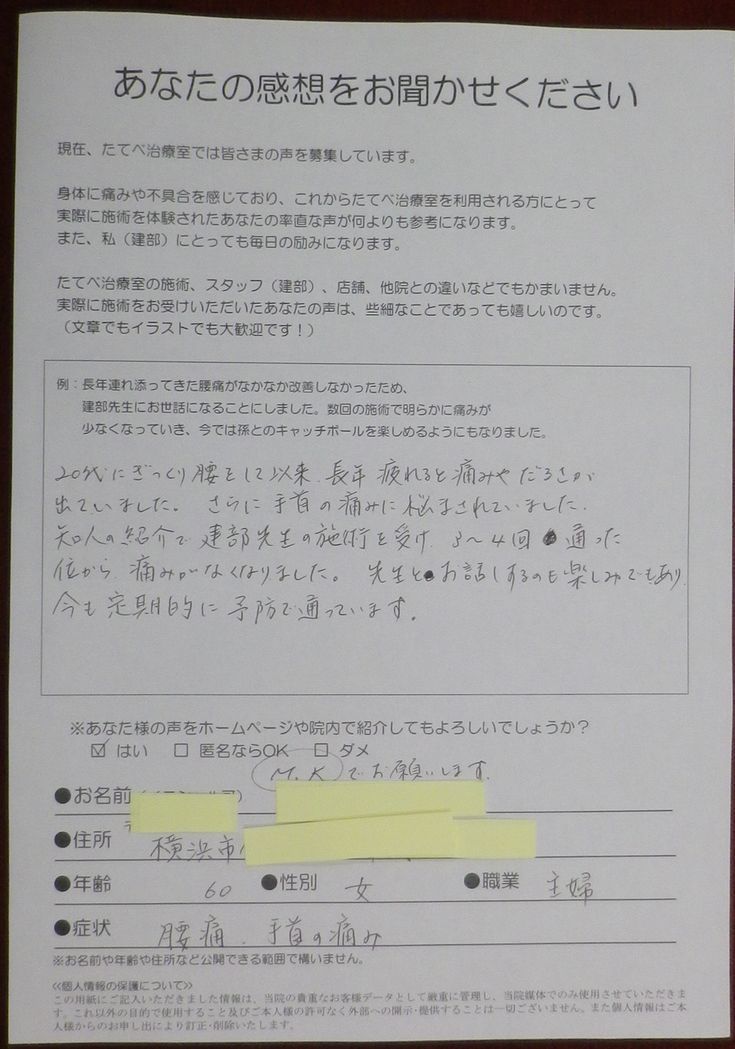 あなたの感想をお聞かせください
現在、たてべ治療室では皆さまの声を募集しています。
身体に痛みや不具合を感じており、これからたてべ治療室を利用される方にとって
実際に施術を体験されたあなたの率直な声が何よりも参考になります。
また、私（建部）にとっても毎日の励みになります。
たてべ治療室の施術、スタッフ（建部）、店舗、他院との違いなどでもかまいません。
実際に施術をお受けいただいたあなたの声は、些細なことであっても嬉しいのです。
（文章でもイラストでも大歓迎です！）
例：長年連れ添ってきた腰痛がなかなか改善しなかったため、
建部先生にお世話になることにしました。数回の施術で明らかに痛みが
少なくなっていき、今では孫とのキャッチボールを楽しめるようにもなりました。
20代にぎっくり腰をして以来、長年疲れると痛みやだるさが
出ていました。さらに手首の痛みに悩まされていました。
知人の紹介で建部先生の施術を受け、3〜4回通った
位から、痛みがなくなりました。先生とお話しするのも楽しみでもあり、
今も定期的に予防で通っています。
※あなた様の声をホームページや院内で紹介してもよろしいでしょうか？
☑ はい □ 匿名ならOK □ ダメ
M.Kでお願いします。
●お名前
●住所 横浜市
●年齢 60 ●性別 女 ●職業 主婦
●症状 腰痛、手首の痛み
※お名前や年齢や住所など公開できる範囲で構いません。
≪個人情報の保護について≫
この用紙にご記入いただきました情報は、当院の貴重なお客様データとして厳重に管理し、当院媒体でのみ使用させていただきま
す。これ以外の目的で使用すること及びご本人様の許可なく外部への開示・提供することは一切ございません。また個人情報はご本
人様からのお申し出により訂正・削除いたします。